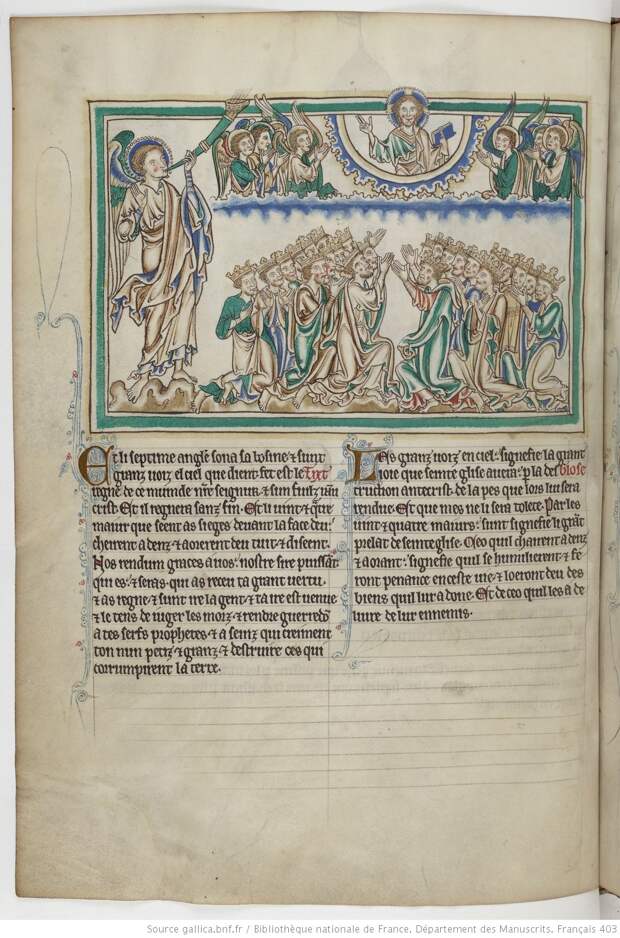 Et li septime angle sona sa bosine ⁊ sunt
granz uoiz el ciel que dient fet est le Tixt
regne de ce munde nr̄e seignur ⁊ sun fiuz ih̄u
crist. Et il regnera sanz fin. Et li uint ⁊ q̃tre
maiur que seent as sieges deuant la face deu:
cheirent a denz ⁊ aorerent deu uiu ⁊ disent.
Nos rendum graces a uos: nostre sire puissãt
qui es: ⁊ seras. qui as receu ta grant uertu.
⁊ as regne ⁊ sunt ire la gent ⁊ ta ire est uenue
⁊ le tens de iuger les morz ⁊ rendre guerredõ
a tes serfs prophetes. ⁊ a seinz qui creiment
ton nun petiz ⁊ granz. ⁊ destruire ces qui
corrumpirent la terre.
Les granz uoiz en ciel: signefie la grant
ioie que seinte glise auera: p̱ la des Glose
truchon antecrist. de la pes que lors lui sera
rendue. Et que mes ne li sera tolete. Par les
uint ⁊ quatre maiurs: sunt signefie li grãt
prelat de seinte glise. O ceo quil chairent a denz
⁊ aorant: signefie quil se humilierent ⁊ fe
ront penance en ceste uie ⁊ loeront deu des
biens quil lur a done. Et de ceo quil les a de
liure de lur ennemis.
Source gallica.bnf.fr / Bibliothèque nationale de France. Département des Manuscrits. Français 403